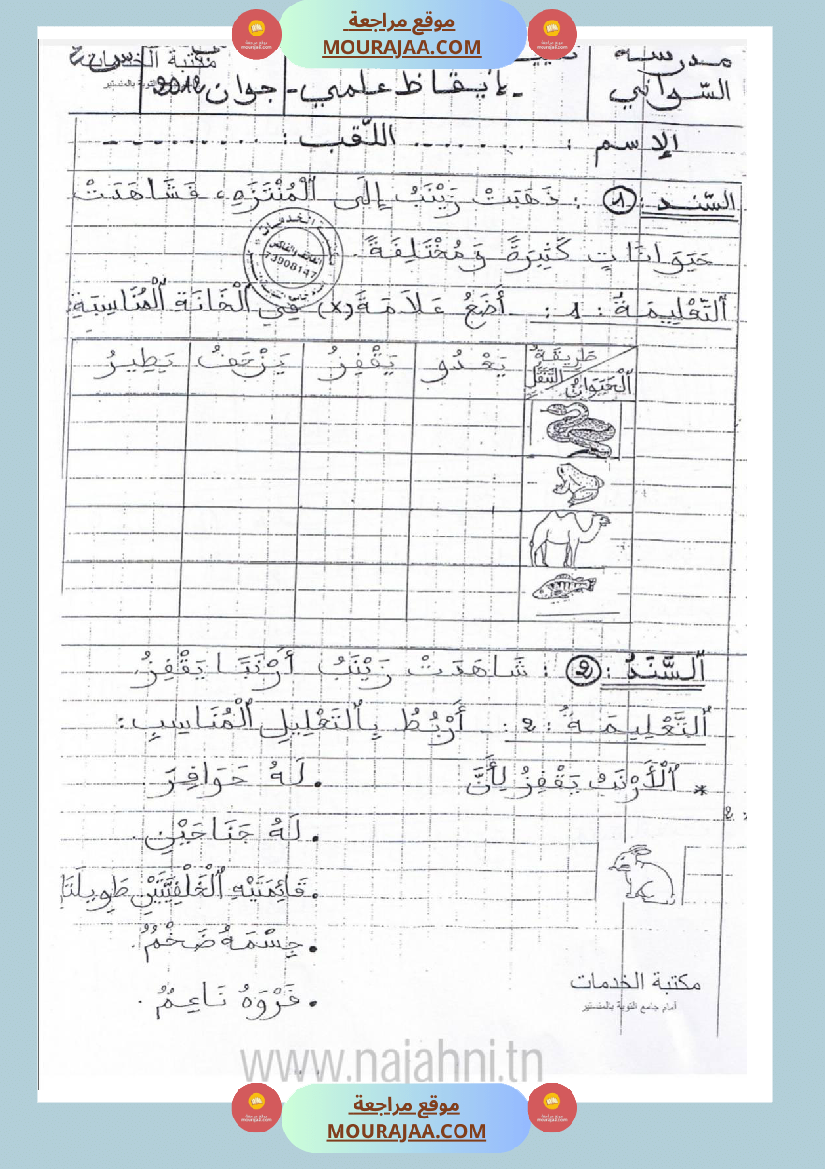 موقع مراجعة
MOURAJAA.COM
مدرسة
السّواني
إيقاظ علمي - جوان
مكتبة الخدمات
الإسم : ........ اللّقب : ..........
السّند 1 : ذَهَبَتْ زَيْنَبُ إِلَى ٱلْمُنْتَزَهِ، فَشَاهَدَتْ
حَيَوَانَاتٍ كَثِيرَةً وَمُخْتَلِفَةً.
73908147
ٱلتَّعْلِيمَةُ : 1 : أَضَعُ عَلَامَةَ (x) فِي ٱلْخَانَةِ ٱلْمُنَاسِبَةِ:
طَرِيقَةُ التَّنَقُّلِ
ٱلْحَيَوَانُ
يَعْدُو
يَقْفِزُ
يَزْحَفُ
يَطِيرُ
ٱلسَّنَدُ : 2 : شَاهَدَتْ زَيْنَبُ أَرْنَبًا يَقْفِزُ
ٱلتَّعْلِيمَةُ : 2 : أَرْبُطُ بِٱلتَّعْلِيلِ ٱلْمُنَاسِبِ:
* ٱلْأَرْنَبُ يَقْفِزُ لِأَنَّ
• لَهُ حَوَافِرَ
• لَهُ جَنَاحَيْنِ.
• قَائِمَتَيْهِ ٱلْخَلْفِيَّتَيْنِ طَوِيلَتَا
• جِسْمَهُ ضَخْمٌ.
• فَرْوَهُ نَاعِمٌ.
مكتبة الخدمات
أمام جامع التوبة بالمنستير
www.najahni.tn
موقع مراجعة
MOURAJAA.COM